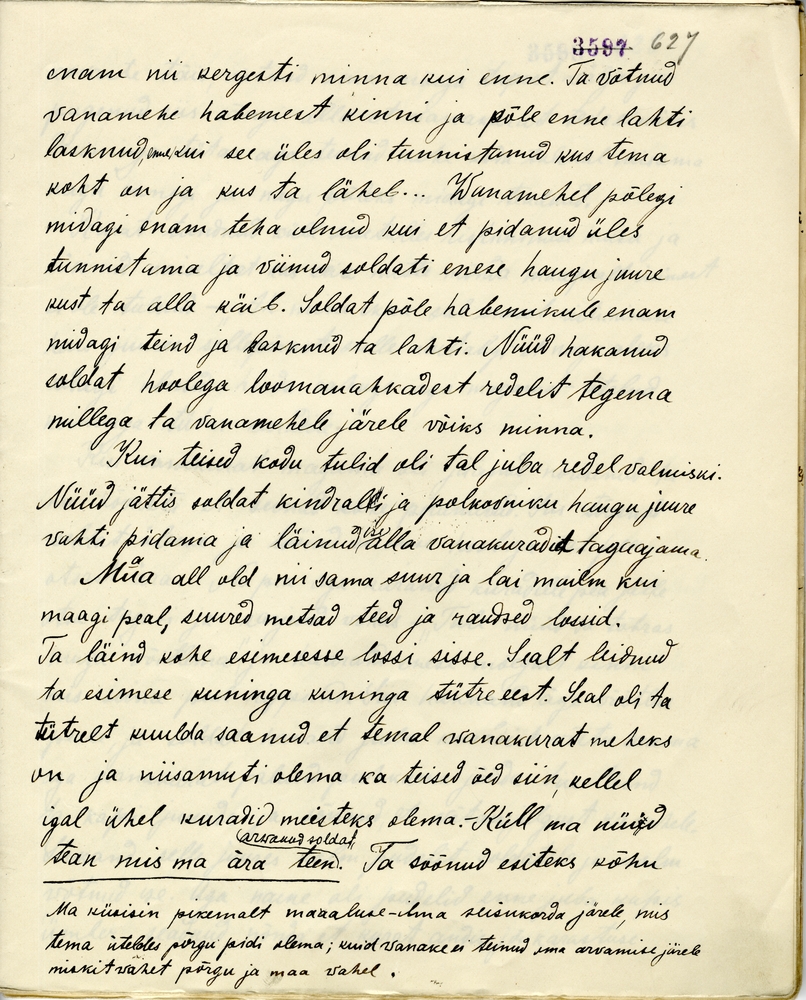 3597 627
enam nii kergesti minna kui enne. Ta võtnud
vanamehe habemest kinni ja põle enne lahti
lasknud, enne, kui see üles oli tunnistanud kus tema
koht on ja kus ta läheb... Wanamehel põlegi
midagi enam teha olnud kui et pidanud üles
tunnistama ja viinud soldati enese haugu juure
kust ta alla käib. Soldat põle habemikule enam
midagi teind ja laskmud ta lahti. Nüüd hakanud
soldat hoolega loomanahkadest redelit tegema
millega ta vanamehele järele võiks minna.
Kui teised kodu tulid oli tal juba redel valmiski.
Nüüd jättis soldat kindrali ja polkovniku haugu juure
vahti pidama ja läinud alla vanakuradit tagaajama.
Maa all old niisama suur ja lai mailm kui
maagi peal, suured metsad teed ja raudsed lossid.
Ta läind kohe esimesesse lossi sisse. Sealt leidnud
ta esimese kuninga kuninga tütre eest. Seal oli ta
tütrelt kuulda saanud et temal wanakurat meheks
on ja niisamuti olema ka teised õed siin, kellel
igal ühel kuradid meesteks olema.- Küll ma nüüd
arwanud soldat
tean mis ma ära teen. Ta söönud esiteks kõhu
Ma küsisin pikemalt maaaluse-ilma seisukorda järele, mis
tema üteldes põrgu pidi olema; kuid vanake ei teinud oma arvamise järele
miskit vahet põrgu ja maa vahel.